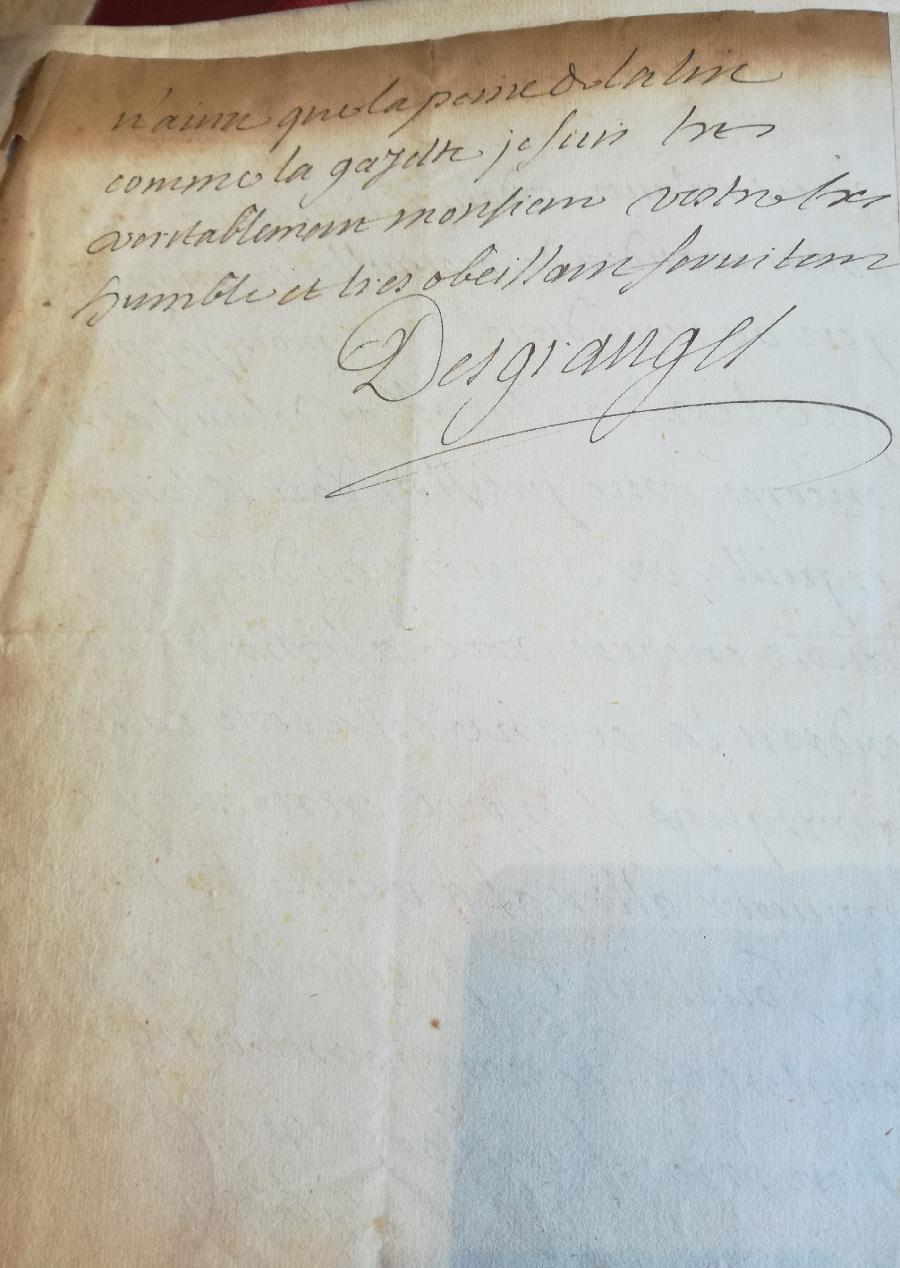 n'aiés que la peine de la lire
comme la gazette je suis tres
veritablement monsieur vostre tres
humble et tres obeissant seruiteur
Desgranges